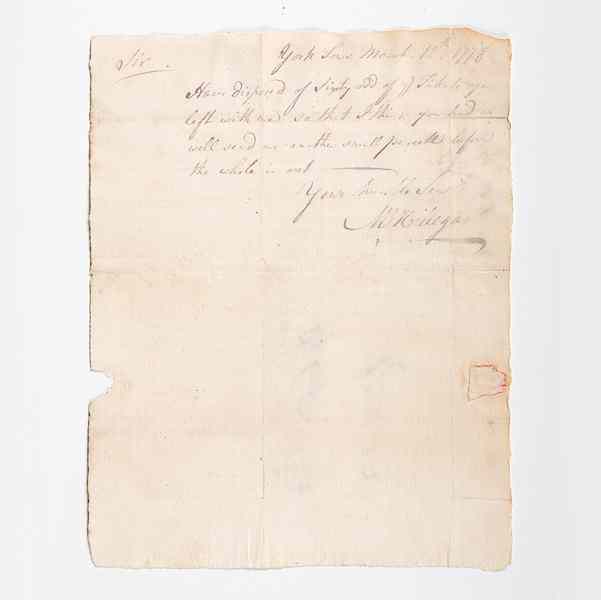 Sir
York Town March 12th 1778
Have disposed of Sixty odd of ye Tickets you
left with me so that I think you had
well send me another small parcell before
the whole is out
Your Hum'le Serv't